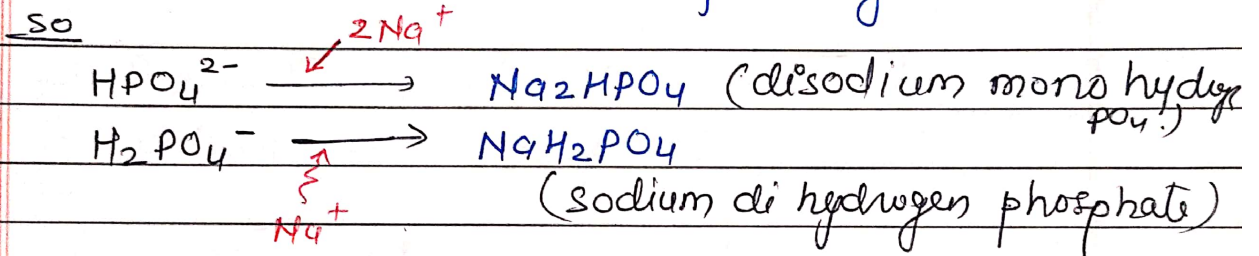 so
2Na⁺
HPO₄²⁻ ⟶ Na₂HPO₄ (disodium mono hydrge
PO₄.)
H₂PO₄⁻ ⟶ NaH₂PO₄
Na⁺
(sodium di hydrogen phosphate)